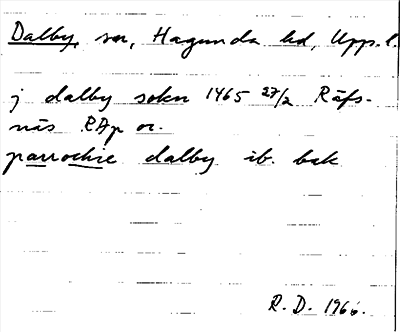 Dalby, sn, Hagunda hd, Upps. l.
j dalby sokn 1465 27/2 Räfs-
näs RAp or.
parrochie dalby ib. bak
R. D. 1966.